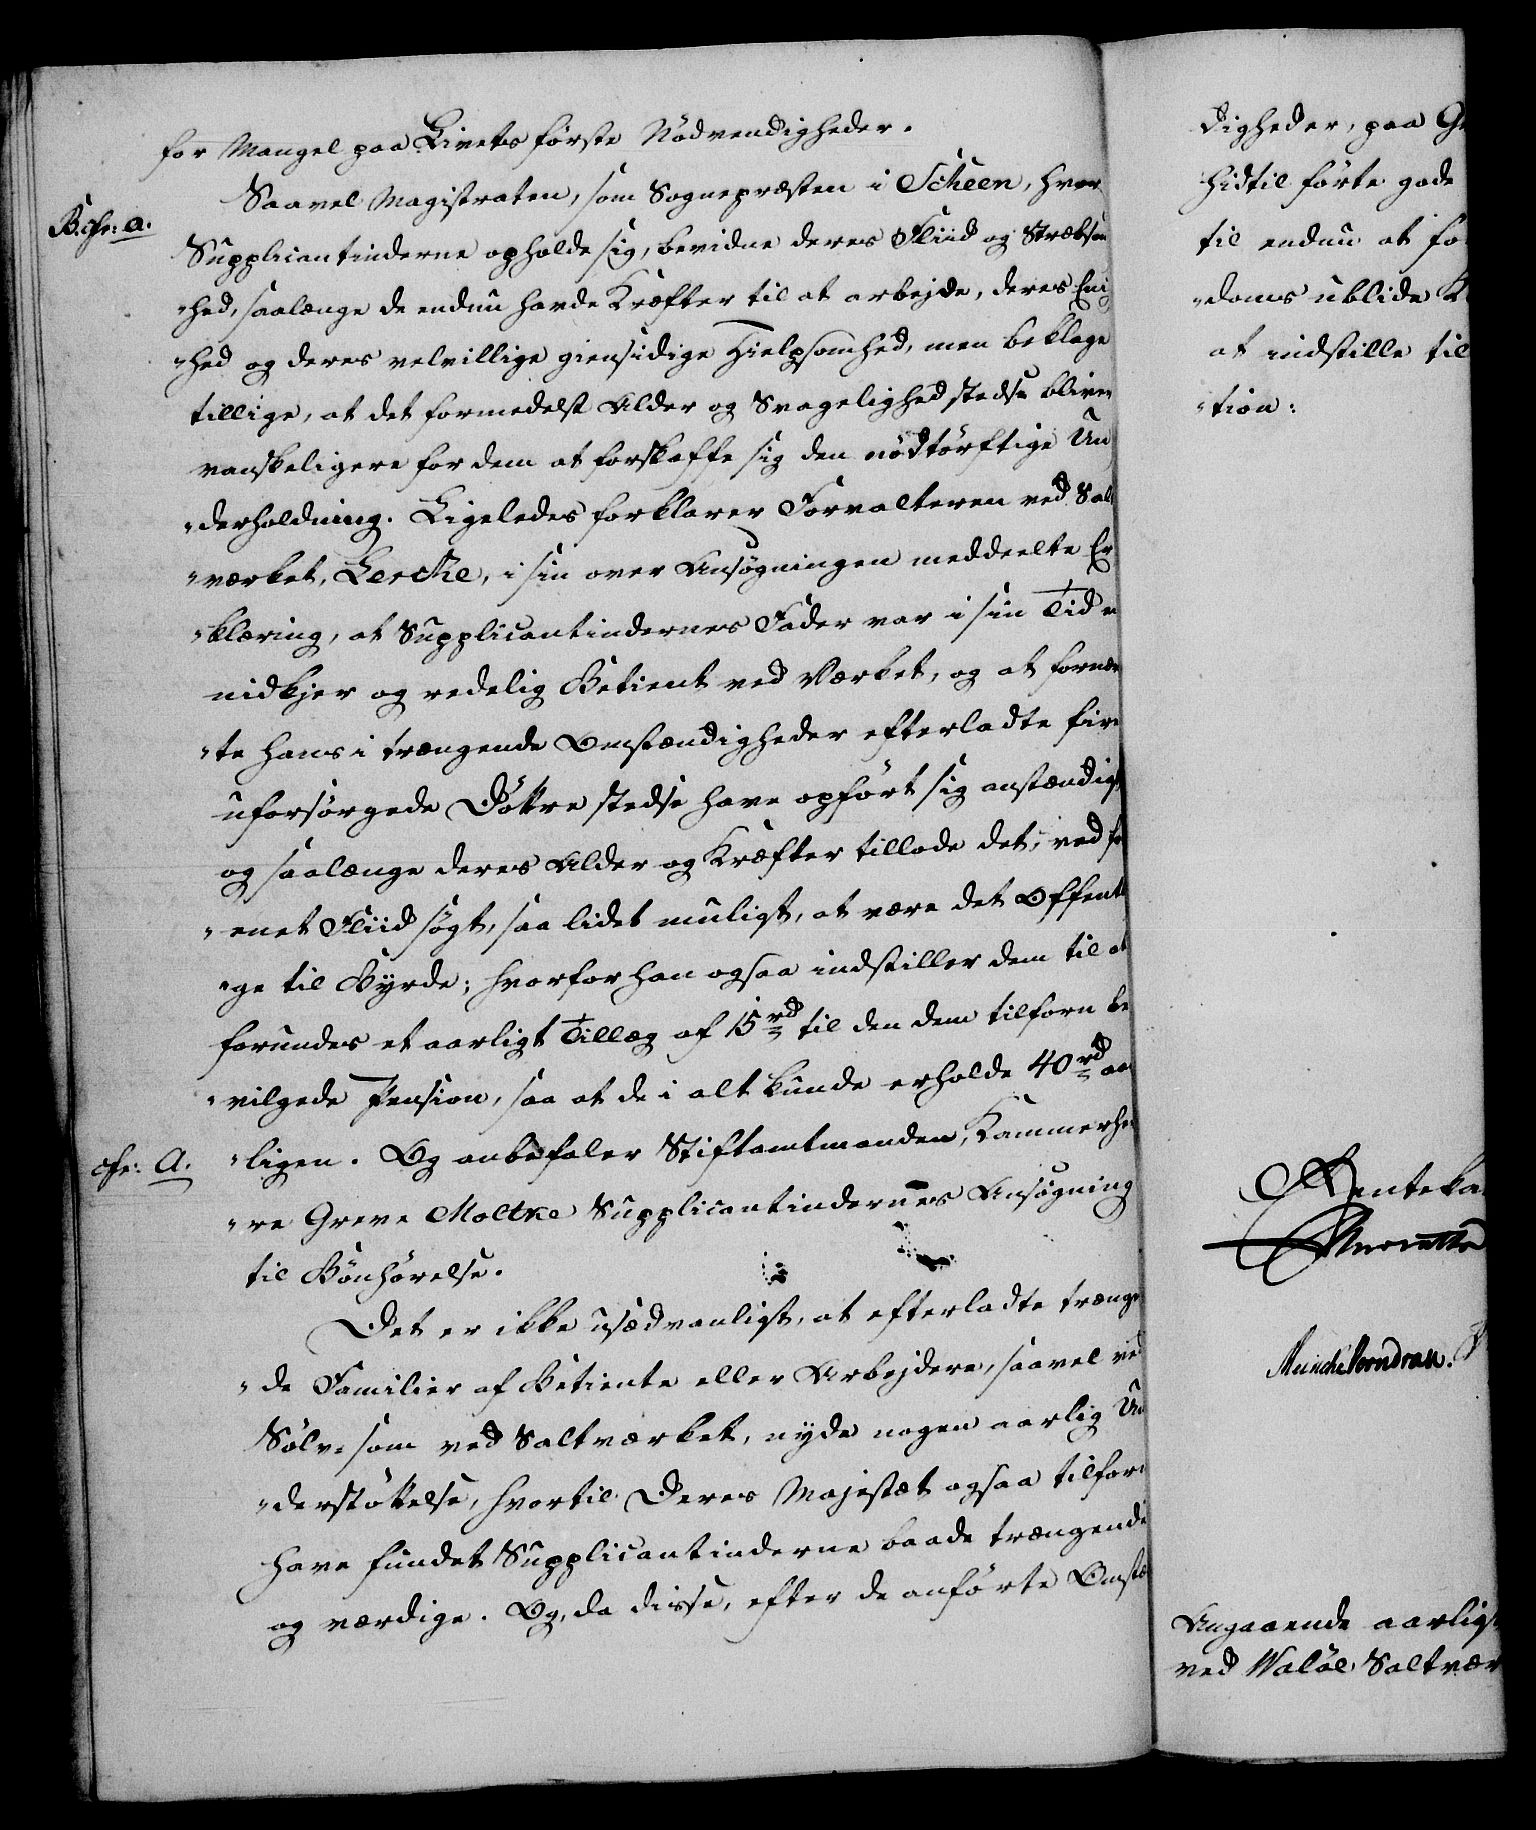 for Mangel paa Livets første Nødvendigheder.
Saavel Magistraten, som Sognepræsten i Scheen, hvor
B. cfr: a.
Supplicantinderne opholde sig, bevidne deres Fliid og Stræbsom
"hed, saalænge de endnu havde Kræfter til at arbejde, deres Enig
"hed og deres velvillige giensidige Hielpsomhed, men beklage
tillige, at det formedelst Alder og Svagelighed stedse bliver
vanskeligere for dem at forskaffe sig den nødtørftige Un
"derholdning. Ligeledes forklarer Forvalteren ved Salt
"værket, Lerche, i sin over Ansøgningen meddeelte Er
"klæring, at Supplicantindernes Fader var i sin Tid
nidkjer og redelig Betient ved Værket, og at fornæv
"te hans i trængende Omstændigheder efterladte fire
uforsørgede Døttre stedse have opført sig anstændigt
og saalænge deres Alder og Kræfter tillode det, ved for
"enet Fliid søgt, saa lidet muligt, at være det Offentli
"ge til Byrde; hvorfor han ogsaa indstiller dem til at
forundes et aarligt Tillæg af 15 rd til den dem tilforn be
"vilgede Pension, saa at de i alt kunde erholde 40 rd aar
cfr: A.
"ligen. Og anbefaler Stiftamtmanden, Kammerher
"re Greve Moltke Supplicantindernes Ansøgning
til Bønhørelse.
Det er ikke usædvanligt, at efterladte trængen
"de Familier af Betiente eller Arbejdere, saavel ved
Sølv- som ved Saltværket, nyde nogen aarlig Un
"derstøttelse, hvortil Deres Majestæt ogsaa tilforn
have fundet Supplicantinderne baade trængende
og værdige. Og, da disse, efter de anførte Omstæn
digheder, paa
hidtil førte gode
til endnu at
"doms ublide
at indstille til
"tion:
Renteka
Munch Vorndran.
Angaaende aarligt
ved Waløe Saltvær